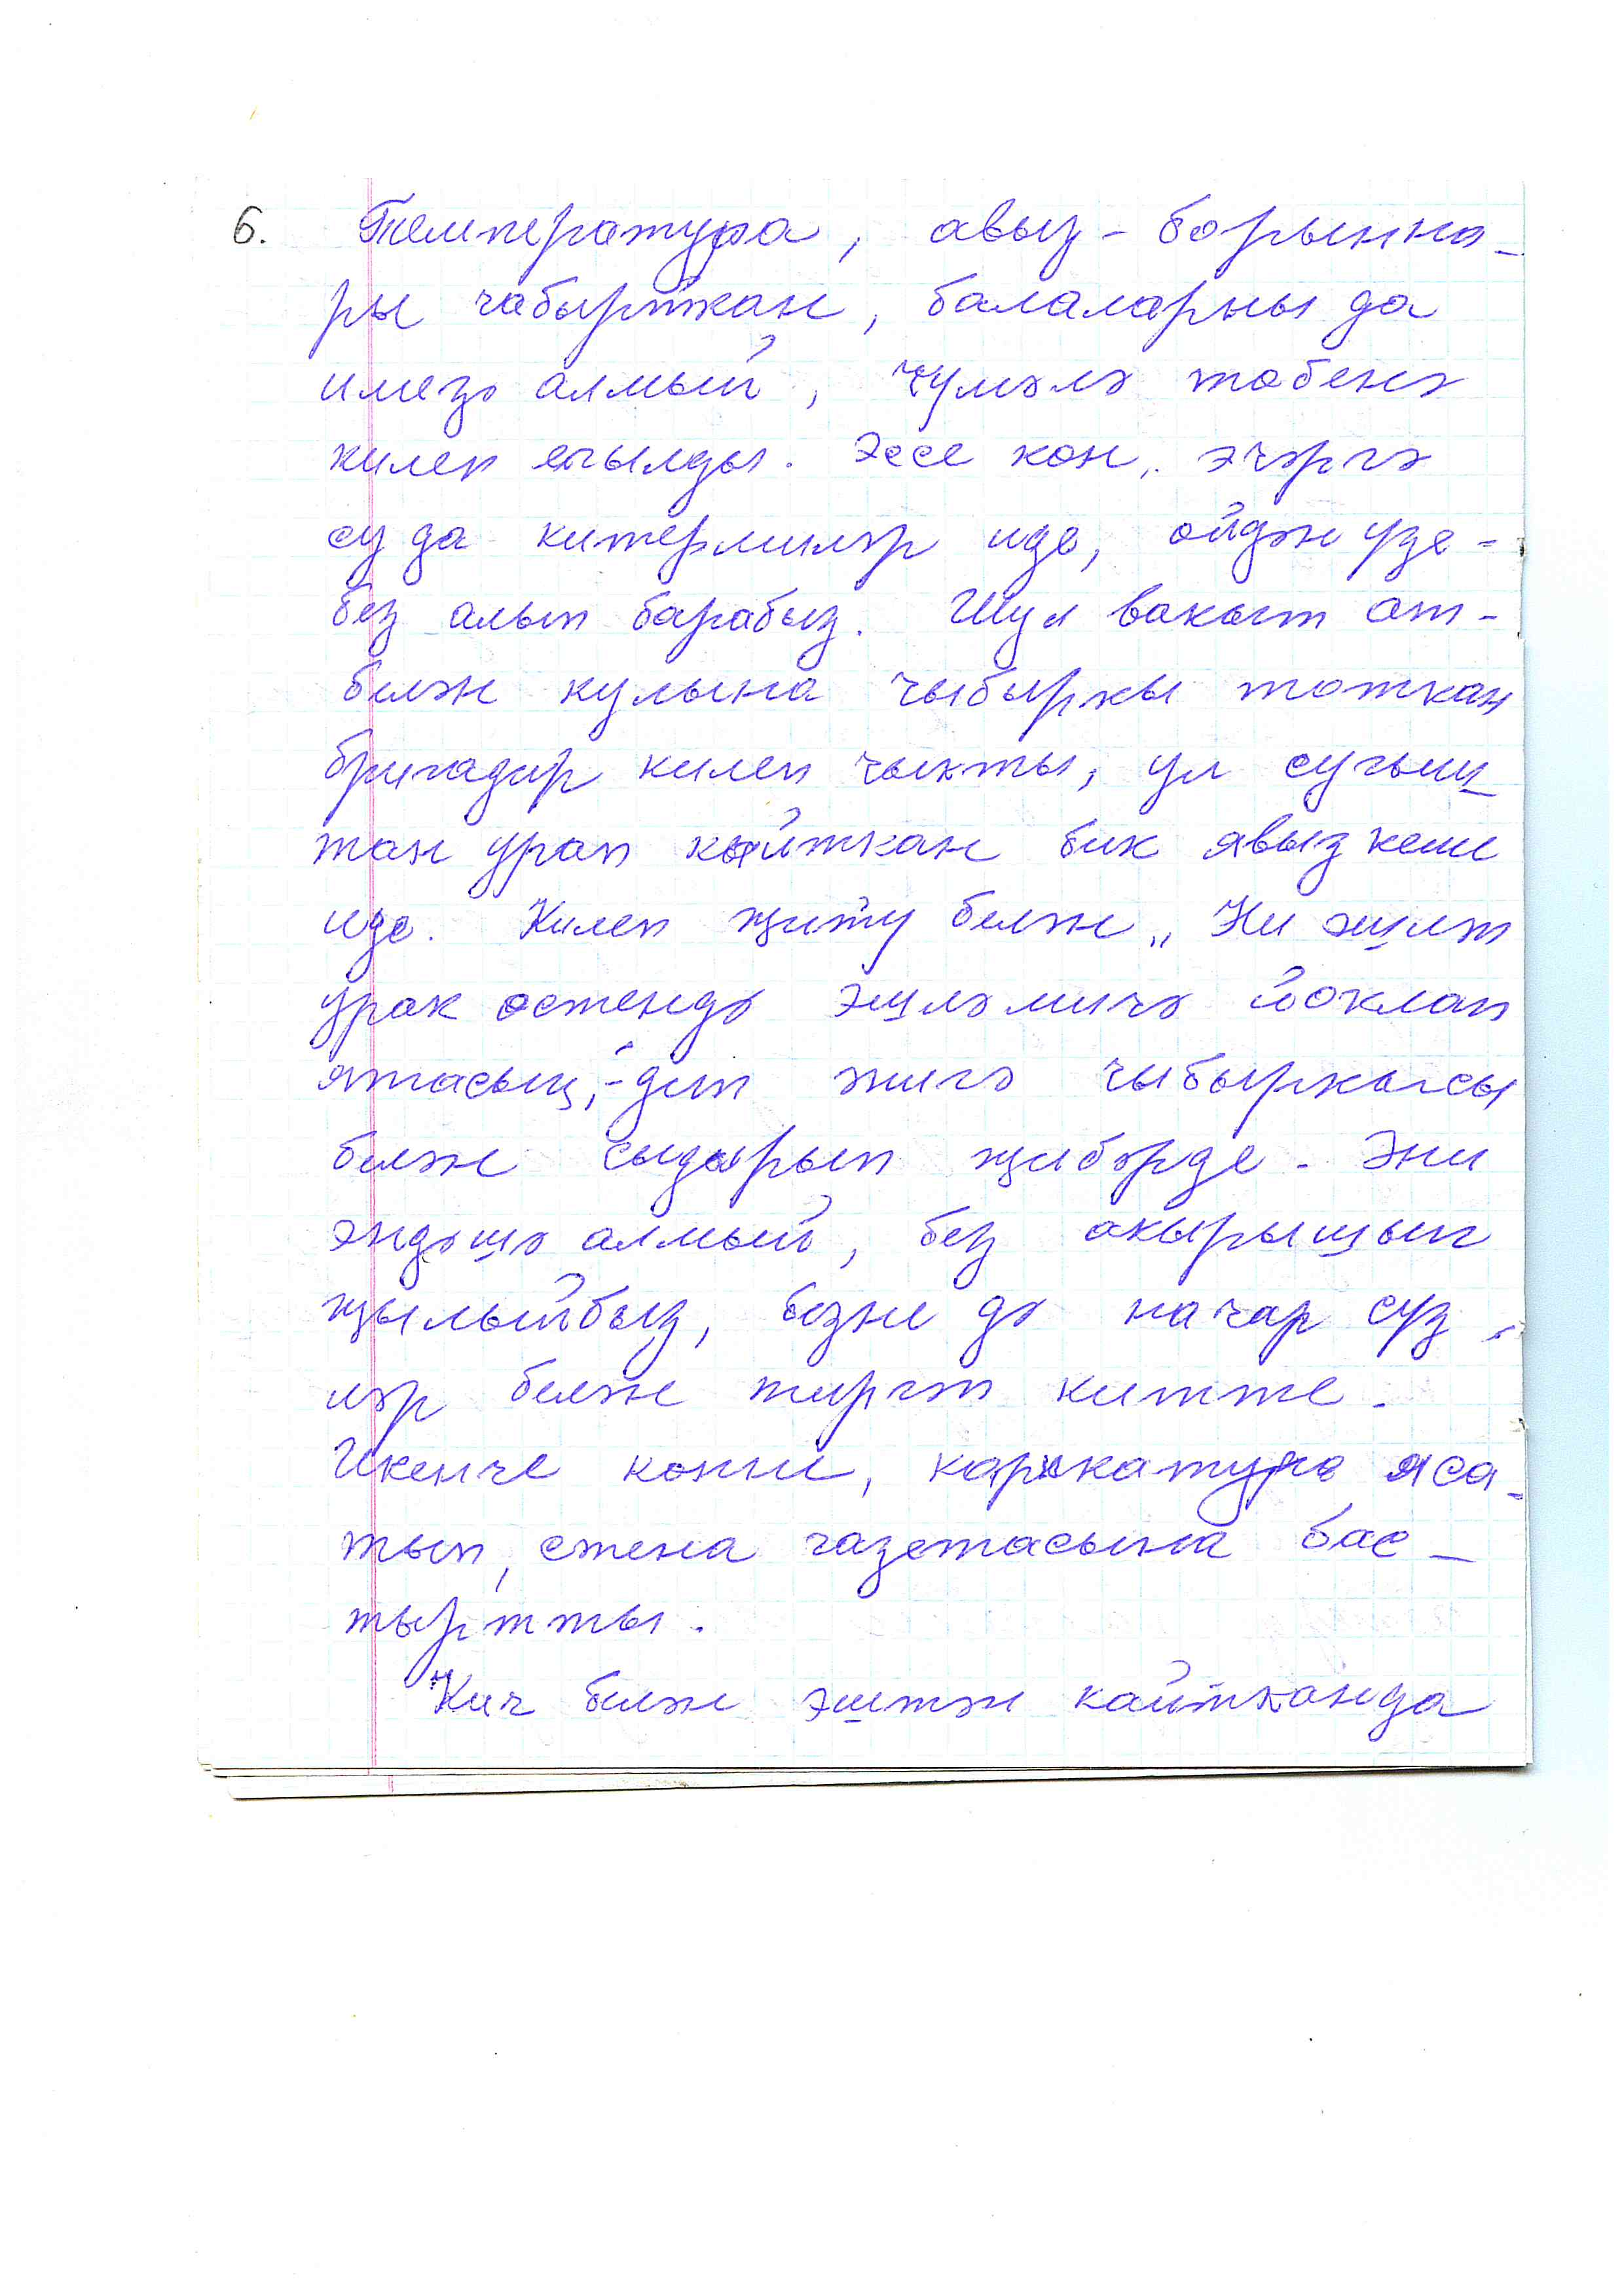 6. Температура, авыз-борынна-
ры чабырткан, балаларны да
имезә алмый, чүмәлә төбенә
килеп егылды. Эссе көн, эчәргә
су да китермиләр иде, өйдән үзе-
без алып барабыз. Шул вакыт ат-
белән кулына чыбыркы тоткан
бригадир килеп чыкты, ул сугыш
тан урап кайткан бик явыз кеше
иде. Килеп җитү белән „ Ни эшләп
урак өстендә эшләмичә йоклап
ятасың,"-дип әнигә чыбыркысы
белән сыдырып җибәрде. Әни
эндәшә алмый, без акырышып
җылыйбыз, безне дә начар сүз-
ләр белән тиргәп китте.
Икенче көнне, карикатура яса-
тып, стена газетасына бас-
тыртты.
Кич белән эштән кайтканда